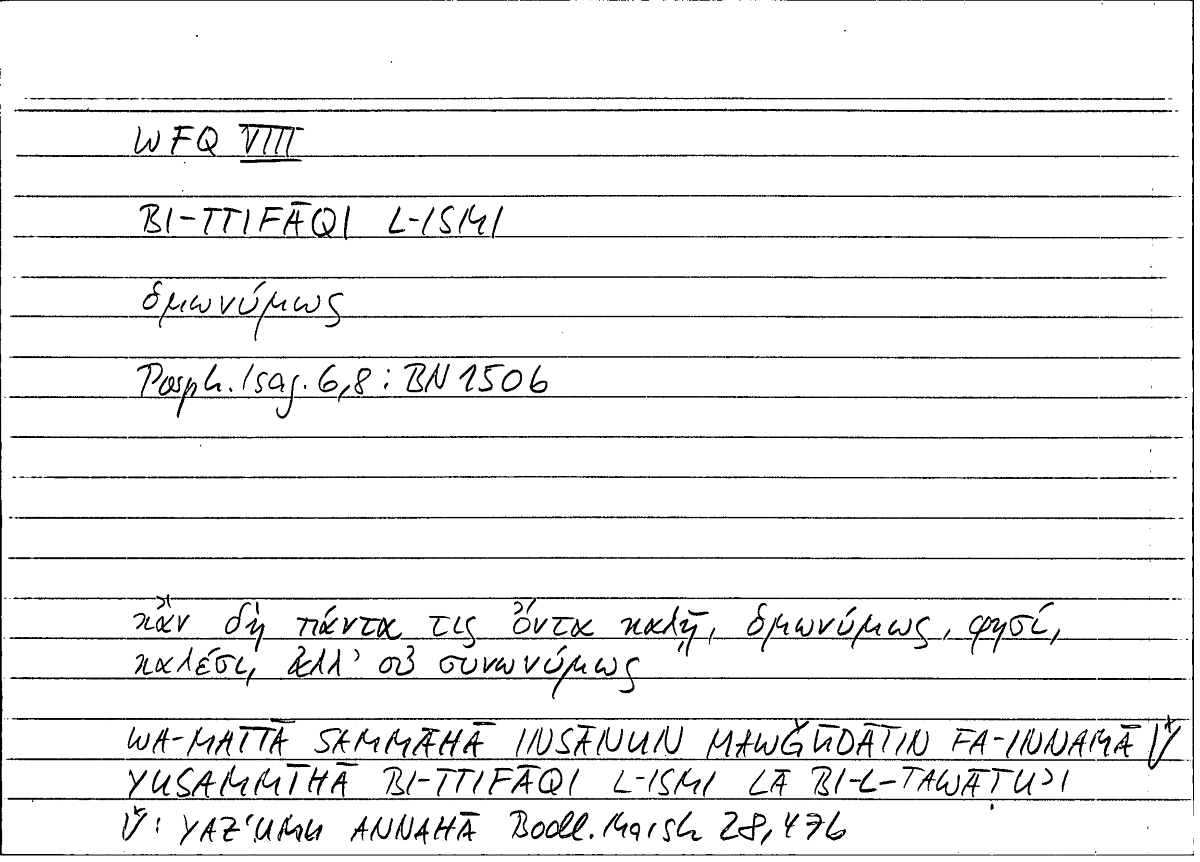 WFQ VIII
BI-TTIFĀQI L-ISMI
ὁμωνύμως
Porph. Isag. 6,8 : BN 150b
κἂν δὴ πάντα τις ὄντα καλῇ, ὁμωνύμως, φησί,
καλέσει, ἀλλ' οὐ συνωνύμως
WA-MATTĀ SAMMĀHĀ INSĀNUN MAWǦŪDĀTIN FA-INNAMĀ V̆
YUSAMMĪHĀ BI-TTIFĀQI L-ISMI LĀ BI-L-TAWĀṬUʾI
V̆ : YAZʿUMU ANNAHĀ Bodl. Marsh 28, 47b